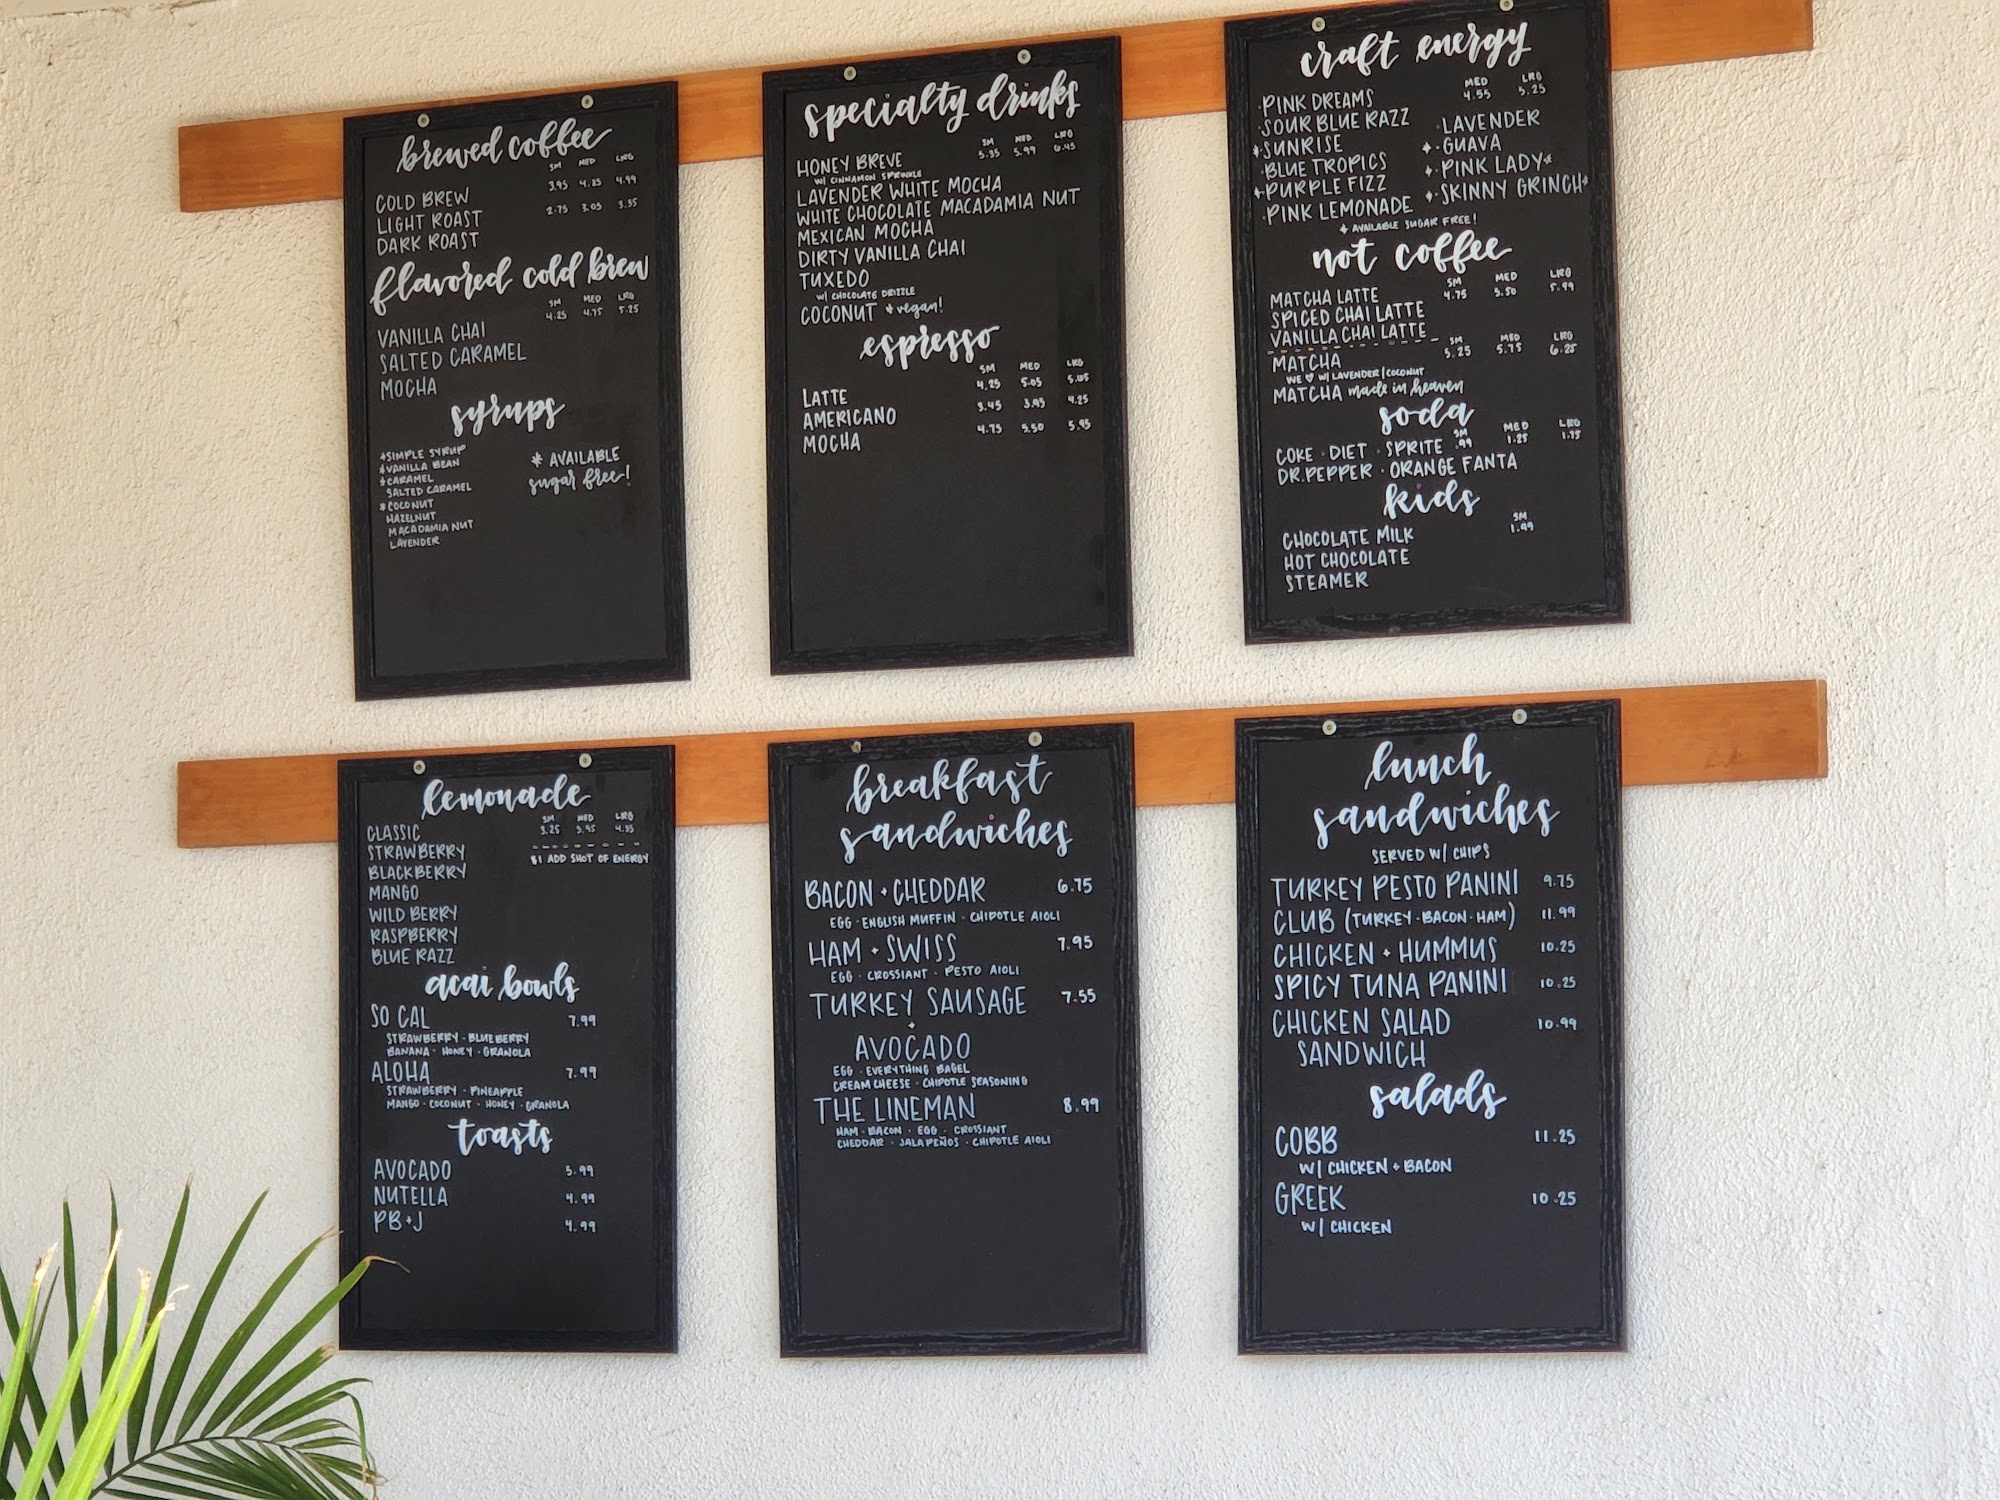 brewed coffee
SM MED LRG
COLD BREW 3.95 4.25 4.99
LIGHT ROAST 2.75 3.05 3.35
DARK ROAST
flavored cold brew
SM MED LRG
4.25 4.75 5.25
VANILLA CHAI
SALTED CARAMEL
MOCHA
syrups
*SIMPLE SYRUP
*VANILLA BEAN
*CARAMEL
SALTED CARAMEL
*COCONUT
HAZELNUT
MACADAMIA NUT
LAVENDER
* AVAILABLE
sugar free!
specialty drinks
SM MED LRG
HONEY BREVE 5.35 5.99 6.45
W/ CINNAMON SPRINKLE
LAVENDER WHITE MOCHA
WHITE CHOCOLATE MACADAMIA NUT
MEXICAN MOCHA
DIRTY VANILLA CHAI
TUXEDO
W/ CHOCOLATE DRIZZLE
COCONUT *vegan!
espresso
SM MED LRG
LATTE 4.25 5.05
AMERICANO 3.45 3.95 4.25
MOCHA 4.75 5.50 5.95
craft energy
MED LRG
4.55 5.25
·PINK DREAMS
·SOUR BLUE RAZZ
*SUNRISE
·BLUE TROPICS
*PURPLE FIZZ
·PINK LEMONADE
·LAVENDER
*·GUAVA
*·PINK LADY*
*·SKINNY GRINCH*
* AVAILABLE SUGAR FREE!
not coffee
SM MED LRG
MATCHA LATTE 4.75 5.50 5.99
SPICED CHAI LATTE
VANILLA CHAI LATTE
SM MED LRG
MATCHA 5.25 5.75 6.25
WE ♡ W/ LAVENDER/COCONUT
MATCHA made in heaven
soda
SM MED LRG
COKE · DIET · SPRITE .99 1.25 1.75
DR.PEPPER · ORANGE FANTA
kids
SM
CHOCOLATE MILK 1.99
HOT CHOCOLATE
STEAMER
lemonade
SM MED LRG
CLASSIC 3.25 3.95 4.55
STRAWBERRY
$1 ADD SHOT OF ENERGY
BLACKBERRY
MANGO
WILD BERRY
RASPBERRY
BLUE RAZZ
acai bowls
SO CAL 7.99
STRAWBERRY · BLUEBERRY
BANANA · HONEY · GRANOLA
ALOHA 7.99
STRAWBERRY · PINEAPPLE
MANGO · COCONUT · HONEY · GRANOLA
toasts
AVOCADO 5.99
NUTELLA 4.99
PB+J 4.99
breakfast
sandwiches
BACON + CHEDDAR 6.75
EGG · ENGLISH MUFFIN · CHIPOTLE AIOLI
HAM + SWISS 7.95
EGG · CROSSIANT · PESTO AIOLI
TURKEY SAUSAGE 7.55
+
AVOCADO
EGG · EVERYTHING BAGEL
CREAM CHEESE · CHIPOTLE SEASONING
THE LINEMAN 8.99
HAM · BACON · EGG · CROSSIANT
CHEDDAR · JALAPEÑOS · CHIPOTLE AIOLI
lunch
sandwiches
SERVED W/ CHIPS
TURKEY PESTO PANINI 9.75
CLUB (TURKEY·BACON·HAM) 11.99
CHICKEN + HUMMUS 10.25
SPICY TUNA PANINI 10.25
CHICKEN SALAD 10.99
SANDWICH
salads
COBB 11.25
W/ CHICKEN + BACON
GREEK 10.25
W/ CHICKEN